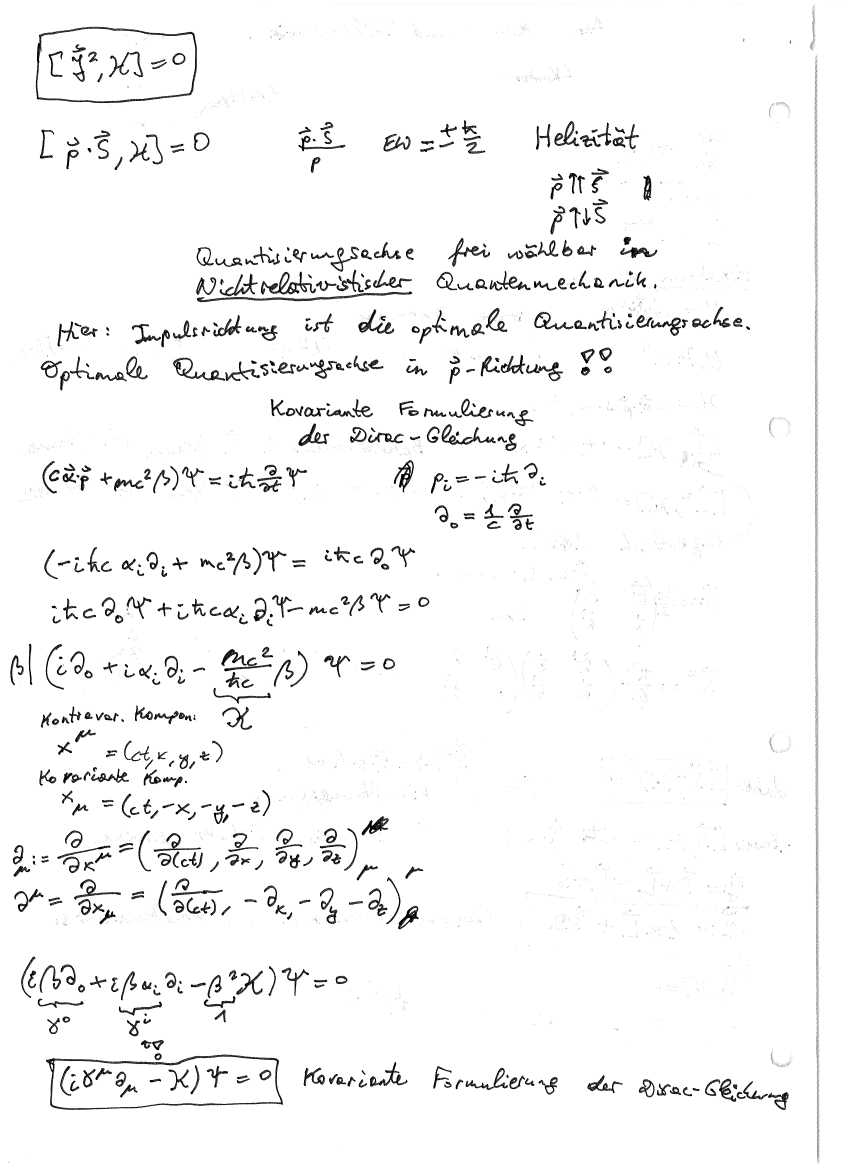 [J⃗², ℋ] = 0
[p⃗·S⃗, ℋ] = 0    p⃗·S⃗/p    EW = ± ħ/2    Helizität
p⃗ ↑↑ S⃗
p⃗ ↑↓ S⃗
Quantisierungsachse frei wählbar in
Nichtrelativistischer Quantenmechanik.
Hier: Impulsrichtung ist die optimale Quantisierungsachse.
Optimale Quantisierungsachse in p⃗-Richtung !!
Kovariante Formulierung
der Dirac-Gleichung
(cα⃗·p⃗ + mc²β)Ψ = iħ ∂/∂t Ψ    pᵢ = -iħ ∂ᵢ
∂₀ = 1/c ∂/∂t
(-iħc αᵢ∂ᵢ + mc²β)Ψ = iħc ∂₀Ψ
iħc ∂₀Ψ + iħcαᵢ ∂ᵢΨ - mc²βΨ = 0
β| (i∂₀ + iαᵢ∂ᵢ - mc²/ħc β) Ψ = 0
Kontravar. Kompon: ϰ
x^μ = (ct, x, y, z)
Kovariante Komp.
x_μ = (ct, -x, -y, -z)
∂_μ := ∂/∂x^μ = (∂/∂(ct), ∂/∂x, ∂/∂y, ∂/∂z)_μ
∂^μ = ∂/∂x_μ = (∂/∂(ct), -∂ₓ, -∂_y - ∂_z)^μ
(iβ∂₀ + iβαᵢ∂ᵢ - β²ϰ)Ψ = 0
γ⁰    γⁱ    1
!!
(iγ^μ∂_μ - ϰ)Ψ = 0    Kovariante Formulierung der Dirac-Gleichung